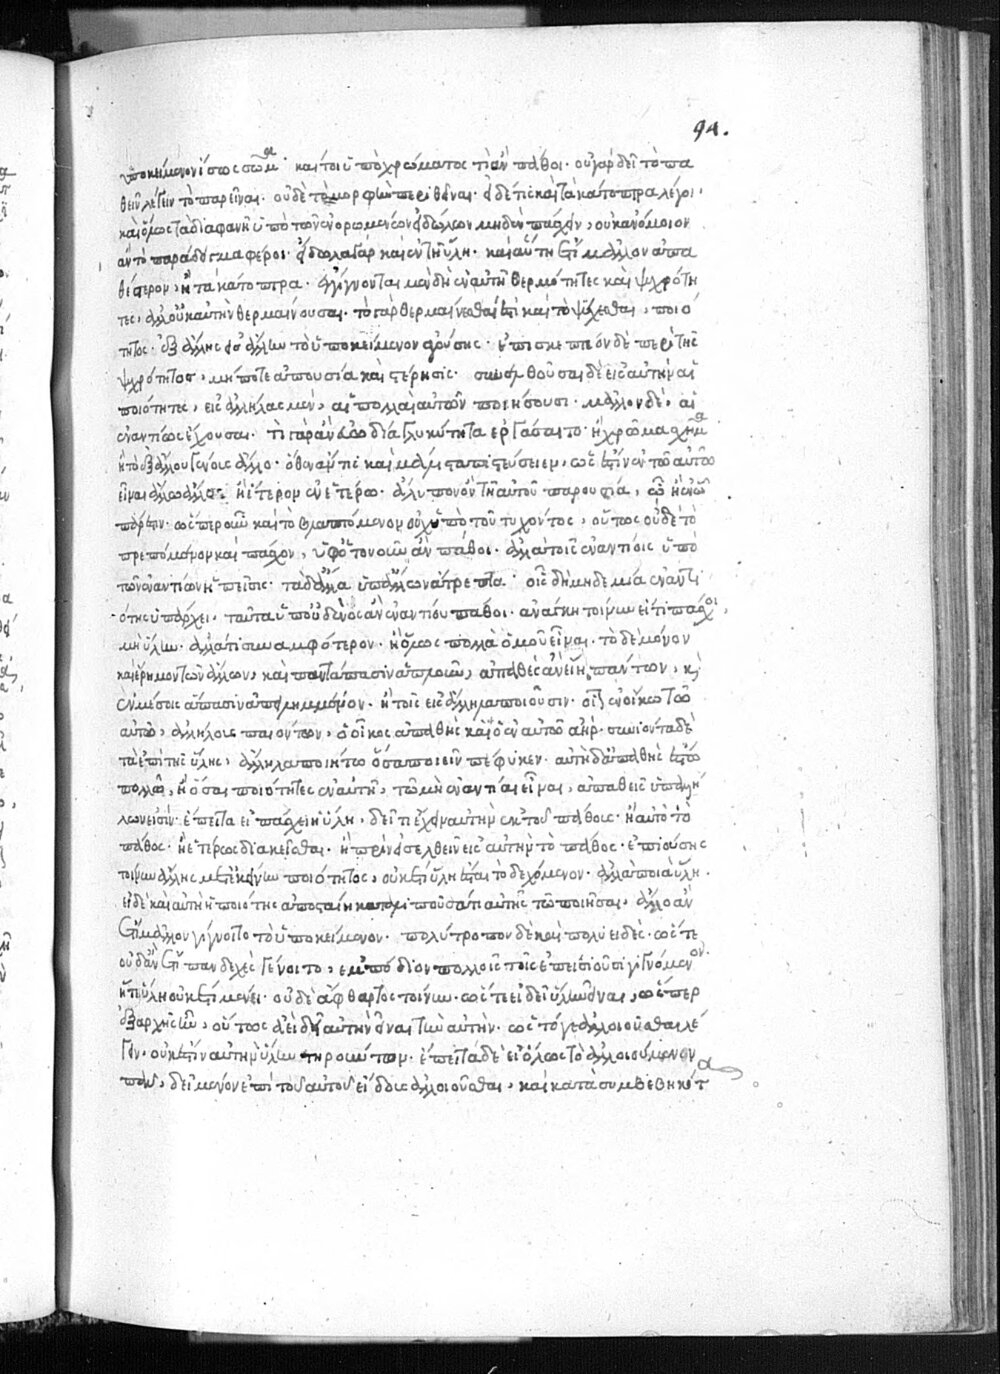 94.
ὑποκείμενον ἴσως σῶμα· καίτοι ὑπὸ χρώματος τί ἂν πάθοι· οὐ γὰρ δεῖ τὸ πα
θεῖν λέγειν τὸ παρεῖναι· οὐδὲ τὸ μορφὴν περιθεῖναι· εἰ δέ τις καὶ τὰ κάτοπτρα λέγοι,
καὶ ὅμως τὰ διαφανῆ ὑπὸ τῶν ἐνορωμένων εἰδώλων μηδὲν πάσχειν, οὐκ ἀνόμοιον
ἂν τὸ παράδειγμα φέροι· εἴδωλα γὰρ καὶ ἐν τῇ ὕλῃ· καὶ αὕτη ἔτι μᾶλλον ἀπα
θέστερον, ἢ τὰ κάτοπτρα· ἐγγίγνονται μὲν δὴ ἐν αὐτῇ θερμότητες καὶ ψυχρότη
τες, ἀλλ' οὐκ αὐτὴν θερμαίνουσαι· τὸ γὰρ θερμαίνεσθαί ἐστι καὶ τὸ ψύχεσθαι, ποιό
τητος· ἐξ ἄλλης εἰς ἄλλην τὸ ὑποκείμενον ἀγούσης· ἐπισκεπτέον δὲ περὶ τῆς
ψυχρότητος, μήποτε ἀπουσία καὶ στέρησις· συνελθοῦσαι δὲ εἰς αὐτὴν αἱ
ποιότητες, εἰς ἀλλήλας μὲν, αἱ πολλαὶ αὐτῶν ποιήσουσι· μᾶλλον δὲ, αἱ
ἐναντίως ἔχουσαι· τί γὰρ ἂν εὐωδία γλυκύτητα ἐργάσαιτο· ἢ χρῶμα σχῆμα
ἢ τὸ ἐξ ἄλλου γένους ἄλλο· ὅθεν ἄν τις καὶ μάλιστα πιστεύσειεν, ὡς ἔστιν ἐν τῷ αὐτῷ
εἶναι ἄλλω ἄλλο· ἢ ἕτερον ἐν ἑτέρῳ· ἄλυπον ὂν τῇ αὐτοῦ παρουσίᾳ, ᾧ ἢ ἐν ᾧ
πάρεστιν· ὥσπερ οὖν καὶ τὸ βλαπτόμενον οὐχ ὑπὸ τοῦ τυχόντος, οὕτως οὐδὲ τὸ
τρεπόμενον καὶ πάσχον, ὑφ' ὁτουοῦν ἂν πάθοι· ἀλλὰ τοῖς ἐναντίοις ὑπὸ
τῶν ἐναντίων ἡ πεῖσις· τὰ δ' ἄλλα ὑπ' ἄλλων ἄτρεπτα· οἷς δὴ μηδεμία ἐναντι
ότης ὑπάρχει, ταῦτα ὑπ' οὐδενὸς ἂν ἐναντίου πάθοι· ἀνάγκη τοίνυν εἴ τι πάσχοι,
μὴ ὕλην· ἀλλά τι συναμφότερον· ἢ ὅμως πολλὰ ὁμοῦ εἶναι· τὸ δὲ μόνον
καὶ ἔρημον τῶν ἄλλων, καὶ παντάπασιν ἁπλοῦν, ἀπαθὲς ἂν εἴη πάντων, κὶ
ἐν μέσοις ἅπασιν ἀπειλημμένον· ἢ τοῖς εἰς ἄλληλα ποιοῦσιν· οἷον ἐν οἴκῳ τῷ
αὐτῷ, ἀλλήλους παιόντων, ὁ οἶκος ἀπαθὴς καὶ ὁ ἐν αὐτῷ ἀήρ· συνιόντα δὲ
τὰ ἐπὶ τῆς ὕλης, ἄλληλα ποιήτω ὅσα ποιεῖν πέφυκεν· αὐτὴ δ' ἀπαθὴς ἔστω
πολλῷ, ἢ ὅσαι ποιότητες ἐν αὐτῇ, τῷ μὴ ἐναντίαι εἶναι, ἀπαθεῖς ὑπ' ἀλλή
λων εἰσίν· ἔπειτα εἰ πάσχει ἡ ὕλη, δεῖ τι ἔχειν αὐτὴν ἐκ τοῦ πάθους· ἢ αὐτὸ τὸ
πάθος· ἢ ἑτέρως διακεῖσθαι· ἢ πρὶν εἰσελθεῖν εἰς αὐτὴν τὸ πάθος· ἐπιούσης
τοίνυν ἄλλης μετ' ἐκείνην ποιότητος, οὐκ ἔτι ὕλη ἔσται τὸ δεχόμενον· ἀλλὰ ποιὰ ὕλη·
εἰ δὲ καὶ αὐτὴ ἡ ποιότης ἀποσταίη καταλιποῦσά τι αὐτῆς τῷ ποιῆσαι, ἄλλο ἂν
ἔτι μᾶλλον γίγνοιτο τὸ ὑποκείμενον· πολύτροπον δὲ καὶ πολυειδές· ὥστε
οὐδ' ἂν ἔτι πανδεχὲς γένοιτο, ἐμπόδιον πολλοῖς τοῖς ἐπεισιοῦσι γιγνόμενον·
ἥ τε ὕλη οὐκ ἔτι μένει· οὐδὲ ἄφθαρτος τοίνυν· ὥστε εἰ δεῖ ὕλην εἶναι, ὥσπερ
ἐξ ἀρχῆς ἦν, οὕτως ἀεὶ δεῖ αὐτὴν εἶναι τὴν αὐτήν· ὡς τό γε ἀλλοιοῦσθαι λέ
γειν, οὐκ ἔστιν αὐτὴν ὕλην τηρούντων· ἔπειτα δὲ εἰ ὅλως τὸ ἀλλοιούμενον
πᾶν, δεῖ μένον ἐπὶ τοῦ αὐτοῦ εἴδους ἀλλοιοῦσθαι, καὶ κατὰ συμβεβηκότα